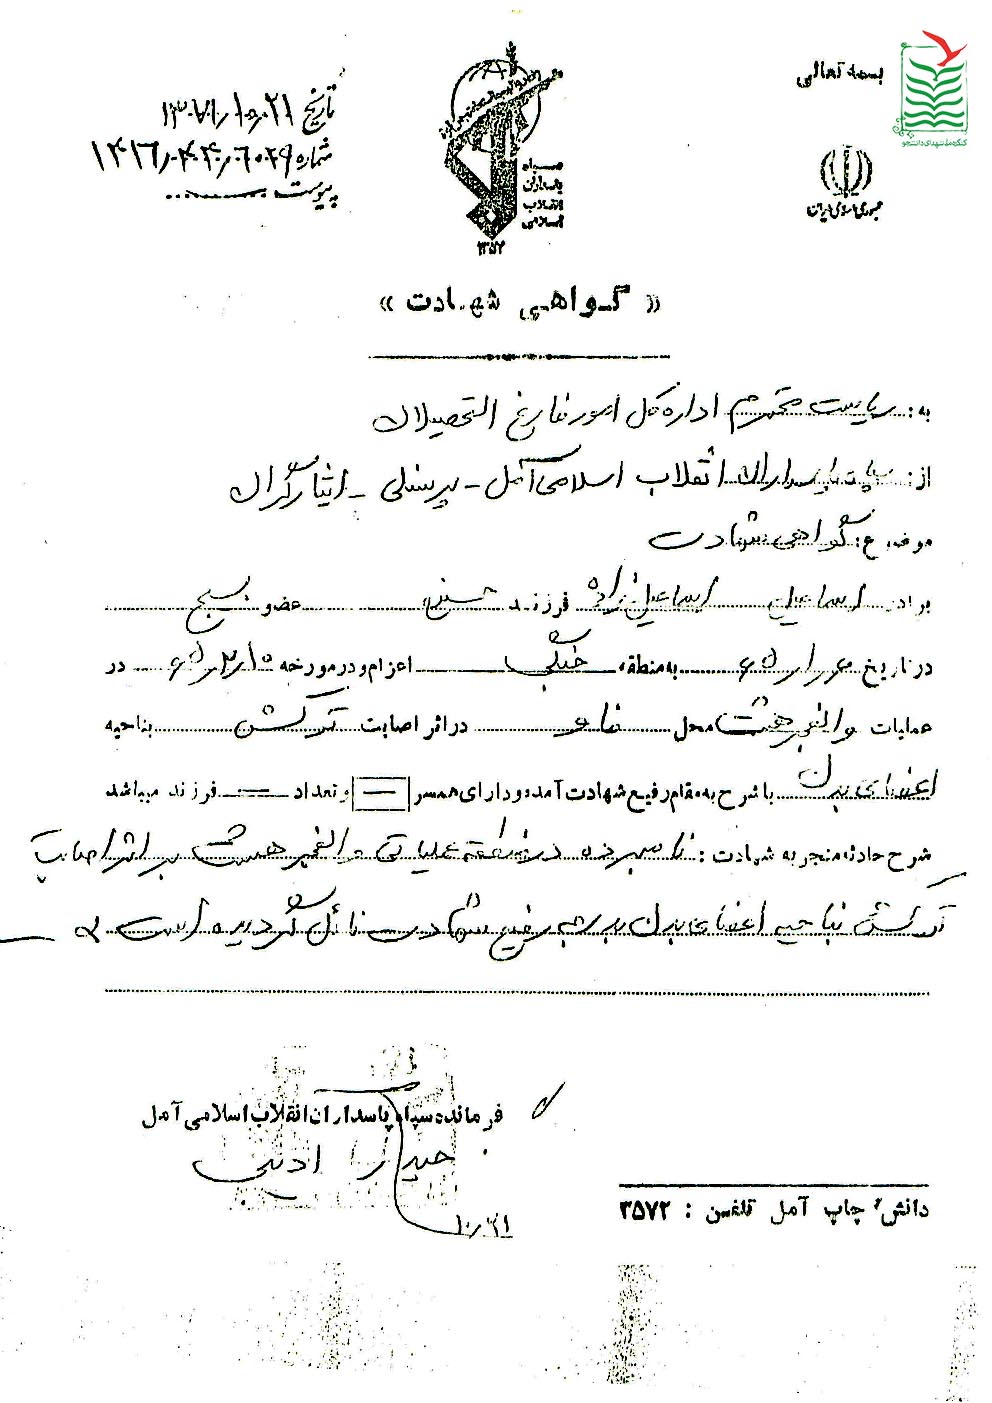 بسمه تعالی
کنگره ملی شهدای دانشجو
جمهوری اسلامی ایران
سپاه
پاسداران
انقلاب
اسلامی
۱۳۵۷
تاریخ ۱۳۷۱/۱۰/۲۱
شماره ۱۴۱۶/۰۴۴/۶۰۲۹
پیوست
« گـواهـی شهـادت »
به: ریاست محترم اداره کل امور فارغ التحصیلان
از: سپاه پاسداران انقلاب اسلامی آمل - پرسنلی - ایثارگران
موضوع: گواهی شهادت
برادر اسماعیل اسماعیل زاده فرزند حسین عضو بسیج
در تاریخ به منطقه جنگی اعزام و در مورخه در
عملیات والفجر هشت محل فاو در اثر اصابت ترکش بناحیه
اعضای بدن با شرح به مقام رفیع شهادت آمده و دارای همسر — و تعداد — فرزند میباشد
شرح حادثه منجر به شهادت: نامبرده در منطقه عملیاتی والفجر هشت بر اثر اصابت
ترکش بناحیه اعضای بدن بدرجه رفیع شهادت نائل گردیده است
فرمانده سپاه پاسداران انقلاب اسلامی آمل
۱۰/۲۱
دانش چاپ آمل تلفن : ۳۵۷۲